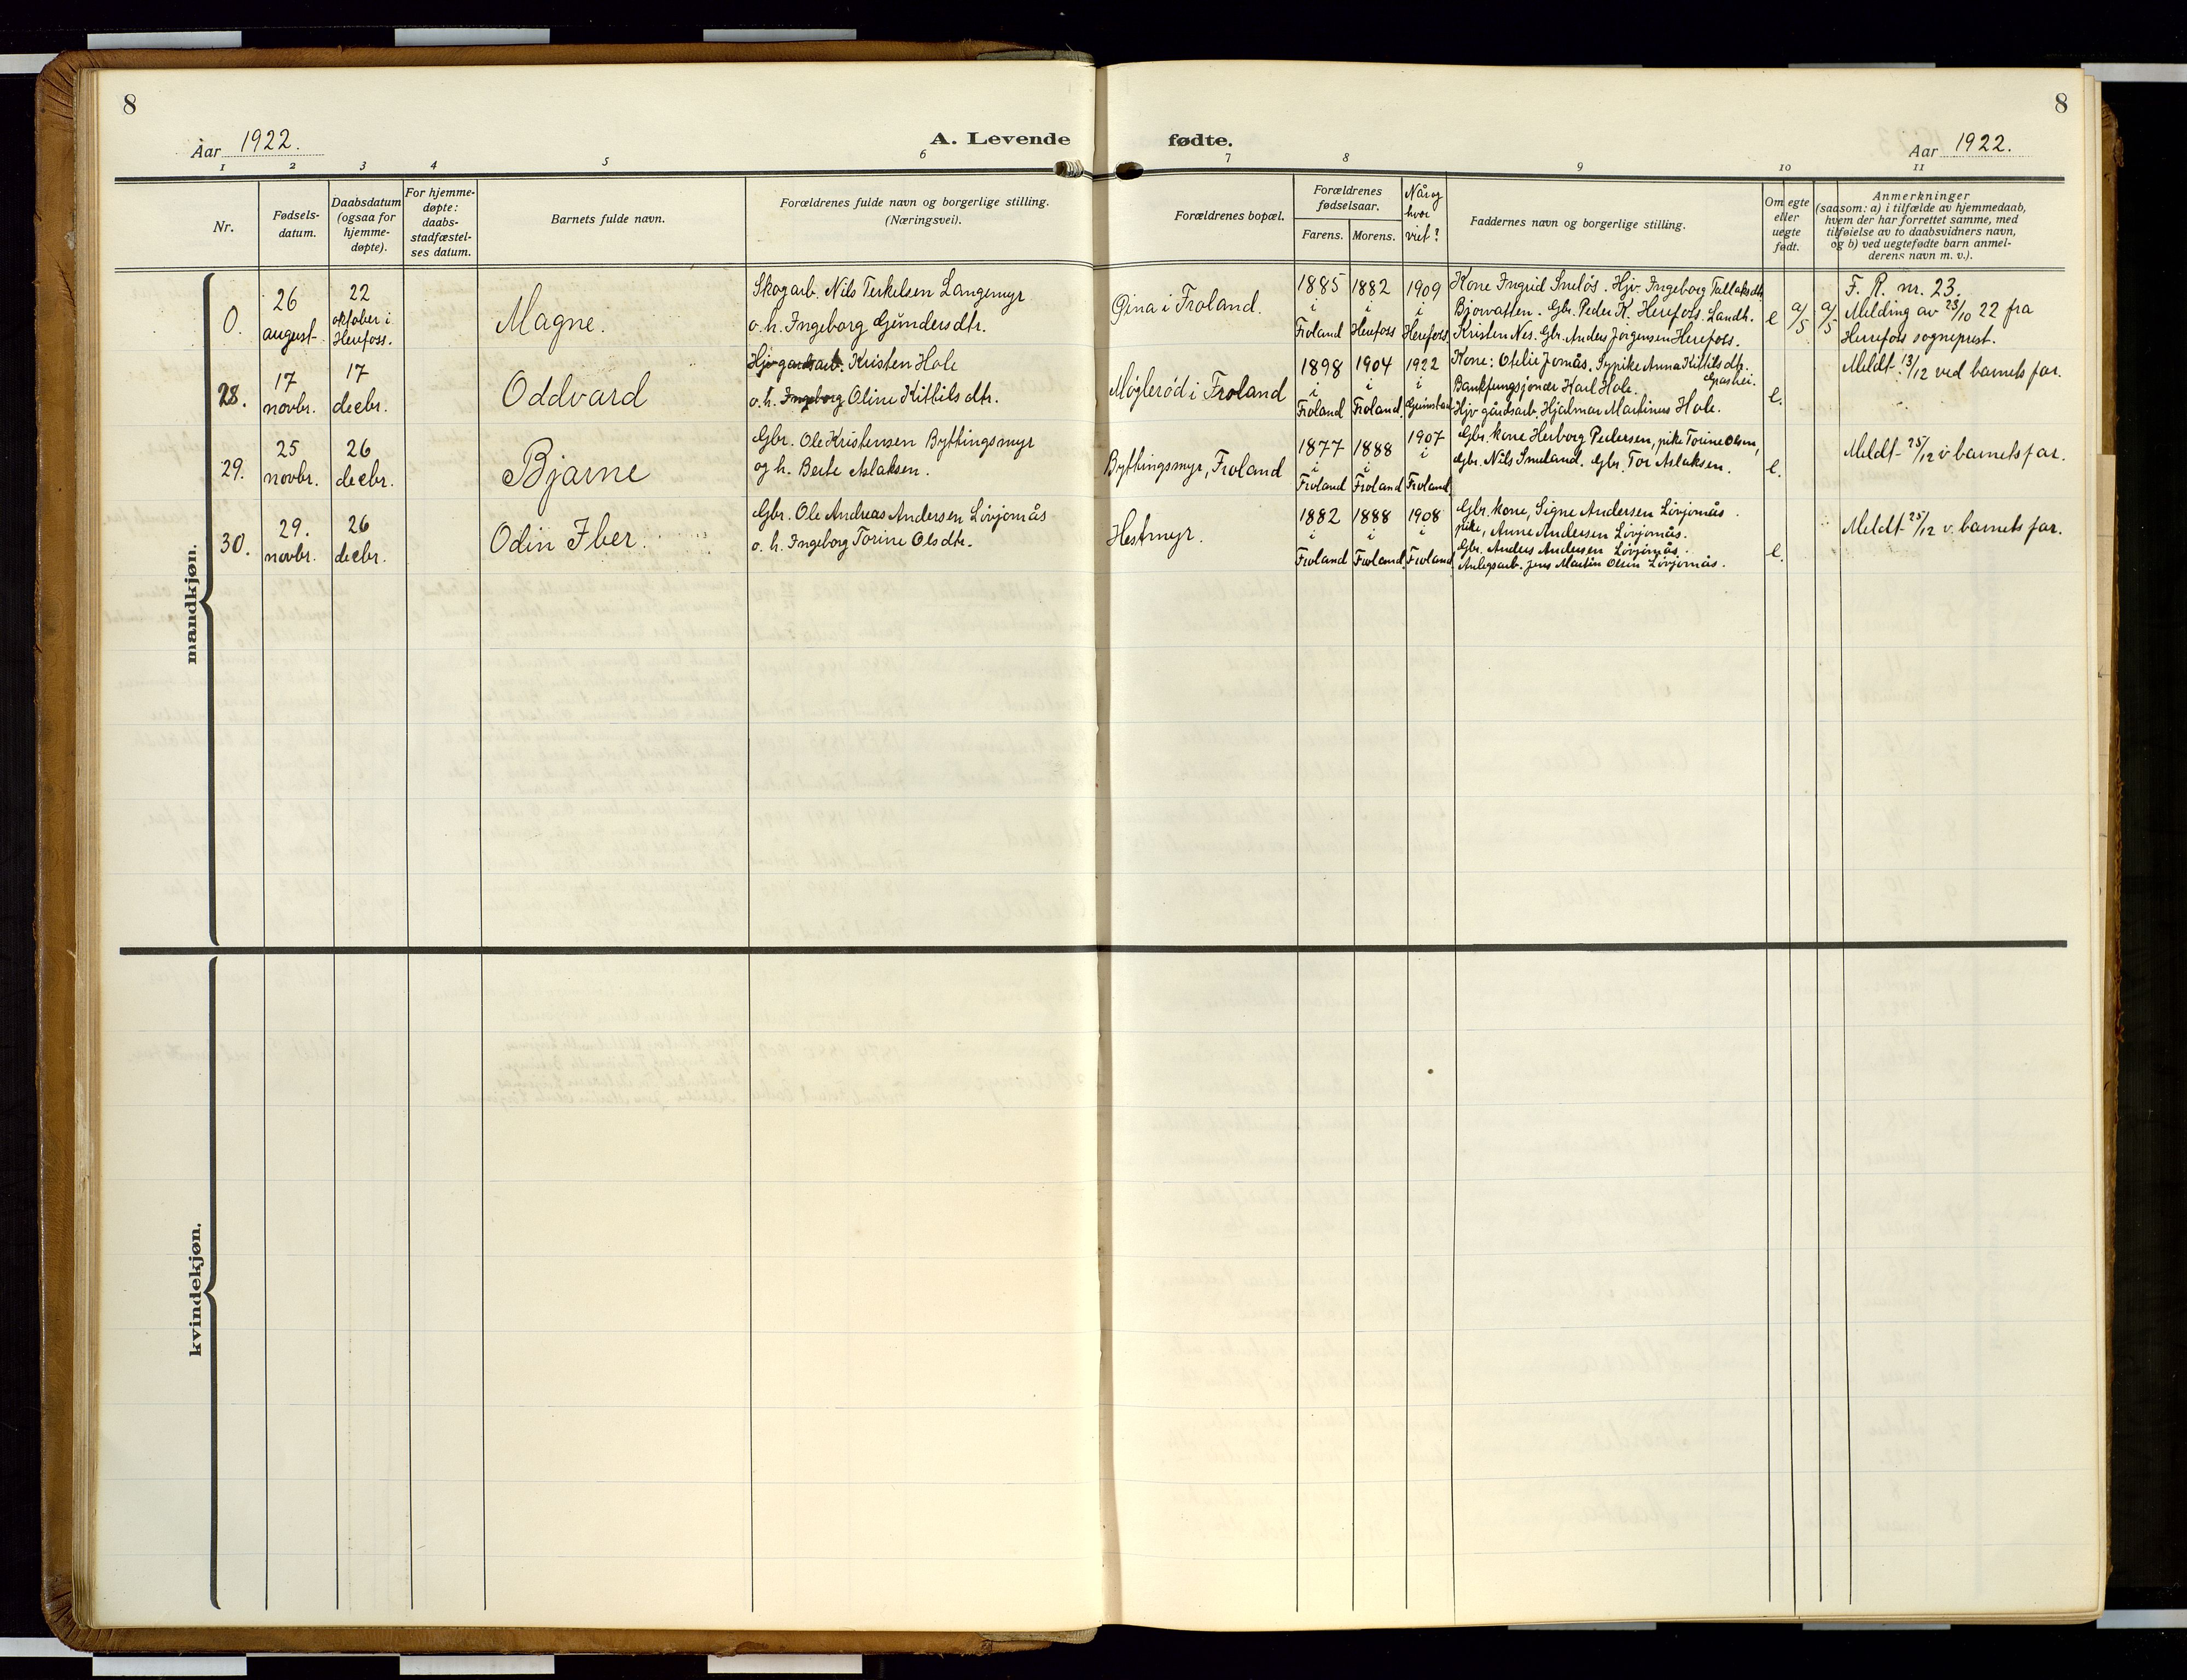 8
Aar 1922.
A. Levende
1 2 3 4 5 6
Nr.
Fødsels-
datum.
Daabsdatum
(ogsaa for
hjemme-
døpte).
For hjemme-
døpte:
daabs-
stadfæstel-
ses datum.
Barnets fulde navn.
Forældrenes fulde navn og borgerlige stilling.
(Næringsvei).
fødte.
8
Aar 1922.
7 8 9 10 11
Forældrenes bopæl.
Forældrenes
fødselsaar.
Farens. Morens.
Når og
hvor
viet?
Faddernes navn og borgerlige stilling.
Om egte
eller
uegte
født.
Anmerkninger
(saasom: a) i tilfælde av hjemmedaab,
hvem der har forrettet samme, med
tilføielse av to daabsvidners navn,
og b) ved uegtefødte barn anmel-
derens navn m. v.).
mandkjøn.
0.
26
august
22
oktober i
Herefoss.
Magne.
Skogarb. Nils Terkelsen Langemyr
o. h. Ingeborg Gundersdtr.
Gina i Froland.
1885
i
Froland
1882
i
Herefoss
1909
i
Herefoss
Kone Ingrid Sneløs. Hjv. Ingeborg Tallaksdtr.
Bjorvatten. Gbr. Peder K. Herefoss. Landh.
Kristen Nes. Gbr. Anders Jørgensen Herefoss.
e
a/5
a/5
F. R. nr. 23.
Melding av 23/10 22 fra
Herefoss sogneprest.
28.
17
novbr.
17
decbr.
Oddvard
Hjv gardsarb. Kristen Hole
o. h. Ingeborg Oline Kittilsdtr.
Møglerød i Froland
1898
i
Froland
1904
i
Froland
1922
i
Grimstad
Kone: Otelie Jomås. Sypike Anna Kittilsdtr.
Grashei.
Bankfungsjonær Karl Hole.
Hjv gårdsarb. Hjalmar Martinus Hole.
e.
Meldt 13/12 ved barnets far.
29.
25
novbr.
26
decbr.
Bjarne
Gbr. Ole Kristensen Byttingsmyr
og h. Berte Aslaksen.
Byttingsmyr, Froland
1877
i
Froland
1888
i
Froland
1907
i
Froland
Gbr. kone Herborg Pedersen, pike Torine Olsen,
Gbr. Nils Smeland. Gbr. Tor Aslaksen.
e.
Meldt 25/12 v barnets far.
30.
29.
novbr.
26
decbr.
Odin Iber.
Gbr. Ole Andreas Andersen Lövjomås
o. h. Ingeborg Torine Olsdtr.
Hestmyr.
1882
i
Froland
1888
i
Froland
1908
i
Froland
Gbr. kone, Signe Andersen Lövjomås.
pike, Anne Andersen Lövjomås.
Gbr. Anders Andersen Lövjomås.
Anlegsarb. Jens Martin Olsen Lövjomås.
e.
Meldt 25/12 v. barnets far.
kvindekjøn.